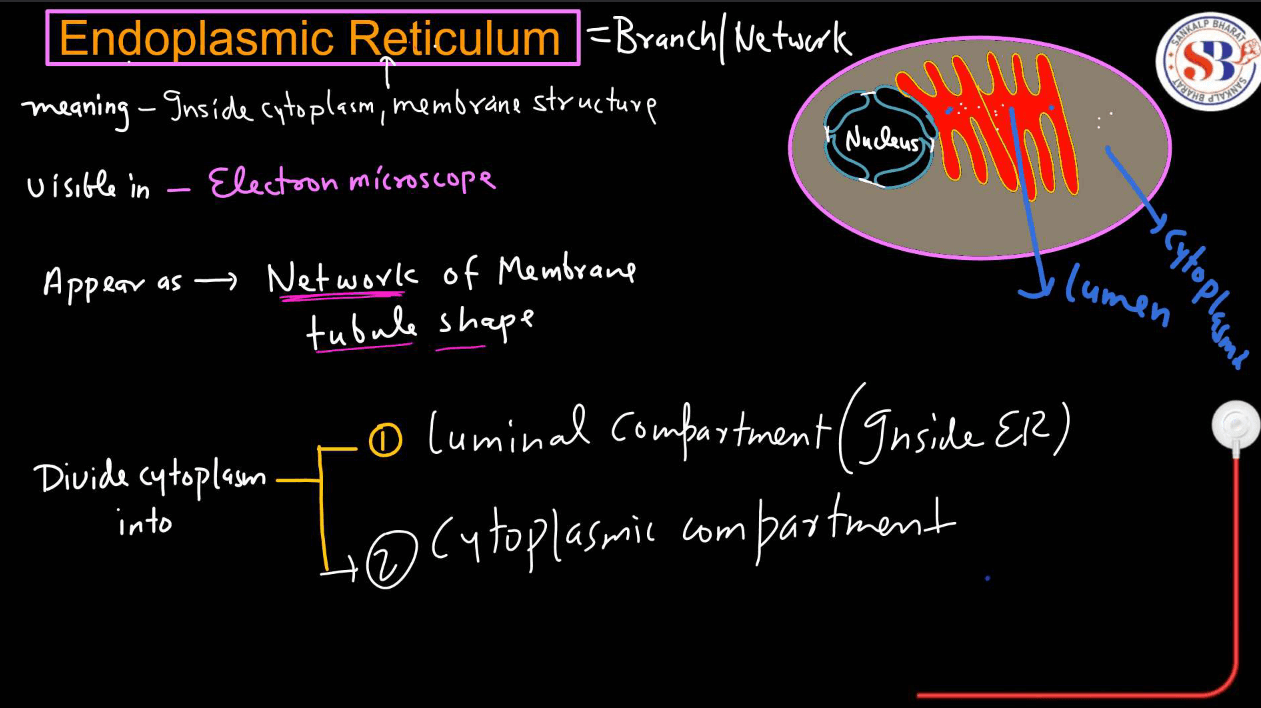 Endoplasmic Reticulum = Branch/Network
meaning - Inside cytoplasm, membrane structure
Visible in - Electron microscope
Appear as → Network of Membrane
tubule shape
Nucleus
lumen
cytoplasm
Divide cytoplasm
into
① Luminal compartment (Inside ER)
② Cytoplasmic compartment
SANKALP BHARAT
SB
SANKALP BHARAT